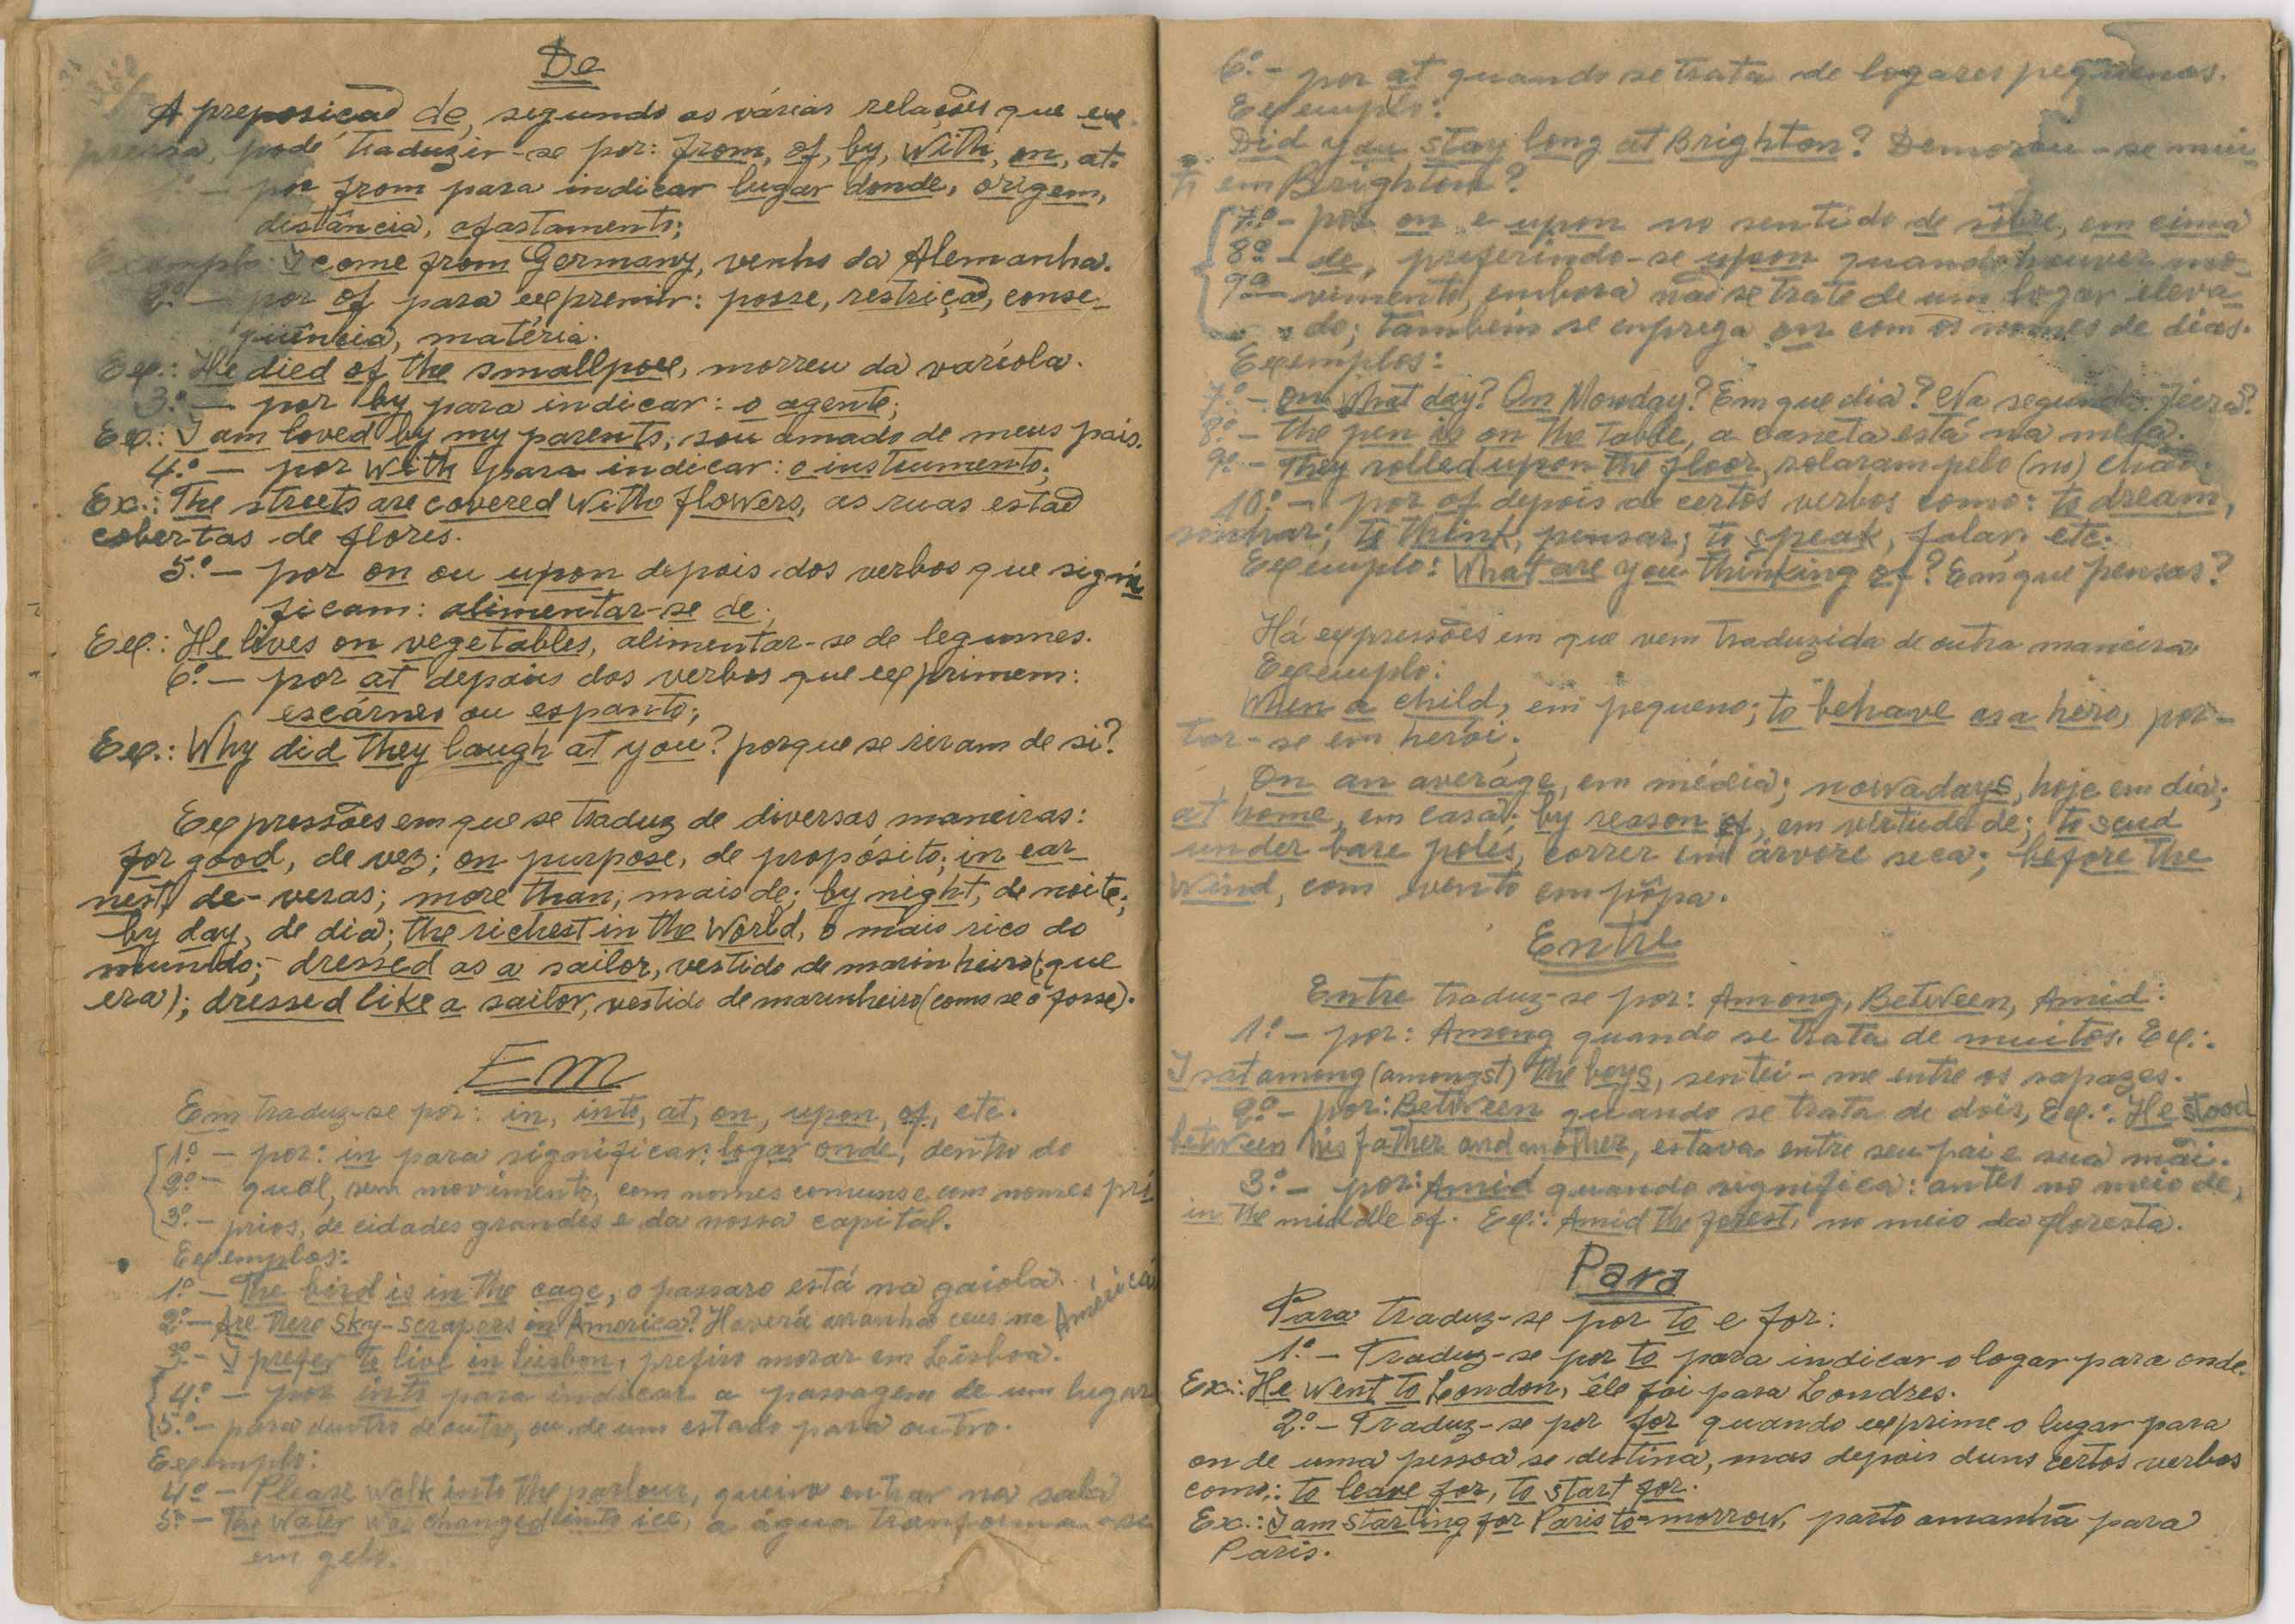 De
A preposição de, segundo as várias relações que ex-
pressa, pode traduzir-se por: from, of, by, with, on, at.
— por from para indicar lugar donde, origem,
distância, afastamento;
Exemplo: I come from Germany, venho da Alemanha.
2.º — por of para exprimir: posse, restrição, conse-
qüência, matéria.
Ex.: He died of the smallpox, morreu da varíola.
3.º — por by para indicar: o agente;
Ex.: I am loved by my parents, sou amado de meus pais.
4.º — por with para indicar: o instrumento;
Ex.: The streets are covered with flowers, as ruas estão
cobertas de flores.
5.º — por on ou upon depois dos verbos que signi
ficam: alimentar-se de;
Ex.: He lives on vegetables, alimentar-se de legumes.
6.º — por at depois dos verbos que exprimem:
escárneo ou espanto;
Ex.: Why did they laugh at you? porque se riram de si?
Expressões em que se traduz de diversas maneiras:
for good, de vez; on purpose, de propósito; in ear-
nest, de-veras; more than, mais de; by night, de noite;
by day, de dia; the richest in the world, o mais rico do
mundo; dressed as a sailor, vestido de marinheiro (que
era); dressed like a sailor, vestido de marinheiro (como se o fosse).
Em
Em traduz-se por: in, into, at, on, upon, of, etc.
1.º — por: in para significar: logar onde, dentro do
2.º — qual, sem movimento, com nomes comuns e com nomes pró
3.º — prios, de cidades grandes e da nossa capital.
Exemplos:
1.º — The bird is in the cage, o passaro está na gaiola.
2.º — Are there sky-scrapers in America? Haverá arranha ceus na América
3.º — I prefer to live in Lisbon, prefiro morar em Lisboa.
4.º — por into para indicar a passagem de um lugar
5.º — para dentro de outro, ou de um estado para outro.
Exemplo:
4.º — Please walk into the parlour, queira entrar na sala
5.º — The water was changed into ice, a água transforma-se
em gelo.
6.º — por at quando se trata de logares pequenos.
Exemplo:
Did you stay long at Brighton? Demorou-se mui-
to em Brighton?
7.º — por on e upon no sentido de sôbre, em cima
8.º — de, preferindo-se upon quando houver mo-
9.º — vimento, embora não se trate de um logar eleva-
do; também se emprega on com os nomes de dias.
Exemplos:
7.º — On what day? On Monday? Em que dia? Na segunda feira?
8.º — The pen is on the table, a caneta está na mesa.
9.º — They rolled upon the floor, rolaram pelo (no) chão.
10.º — por of depois de certos verbos como: to dream,
sonhar; to think, pensar; to speak, falar; etc.
Exemplo: What are you thinking of? Em que pensas?
Há expressões em que vem traduzida de outra maneira
Exemplo:
When a child, em pequeno; to behave as a hero, por-
tar-se em herói.
On an average, em média; nowadays, hoje em dia;
at home, em casa; by reason of, em virtude de; to scud
under bare poles, correr em árvore seca; before the
wind, com vento em pôpa.
Entre
Entre traduz-se por: Among, Between, Amid:
1.º — por: Among quando se trata de muitos. Ex.:
I sat among (amongst) the boys, sentei-me entre os rapazes.
2.º — por: Between quando se trata de dois, Ex.: He stood
between his father and mother, estava entre seu pai e sua mãi.
3.º — por: Amid quando significa: antes no meio de,
in the middle of. Ex.: Amid the forest, no meio da floresta.
Para
Para traduz-se por to e for:
1.º — Traduz-se por to para indicar o logar para onde.
Ex.: He went to London, êle foi para Londres.
2.º — Traduz-se por for quando exprime o lugar para
onde uma pessoa se destina, mas depois duns certos verbos
como: to leave for, to start for.
Ex.: I am starting for Paris to-morrow, parto amanhã para
Paris.